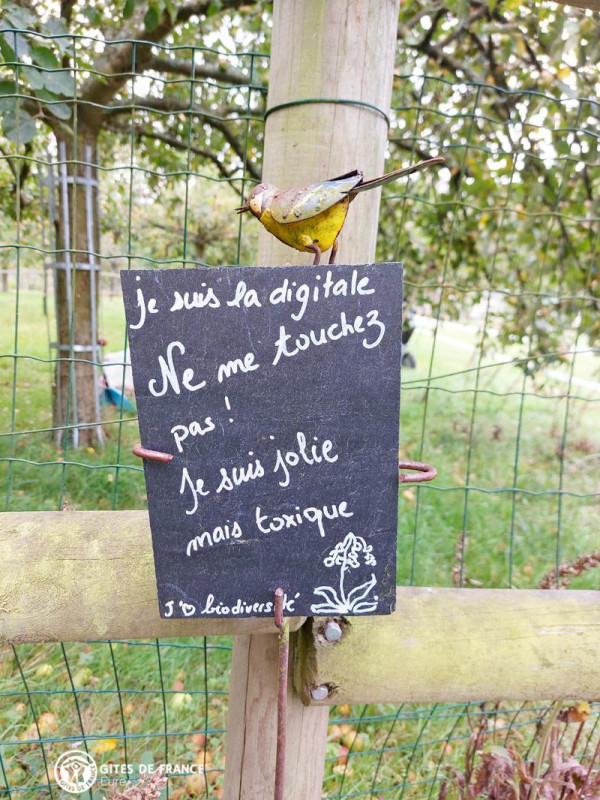 Je suis la digitale
Ne me touchez
pas !
Je suis jolie
mais toxique
J'♡ biodiversité
GÎTES DE FRANCE
Eure